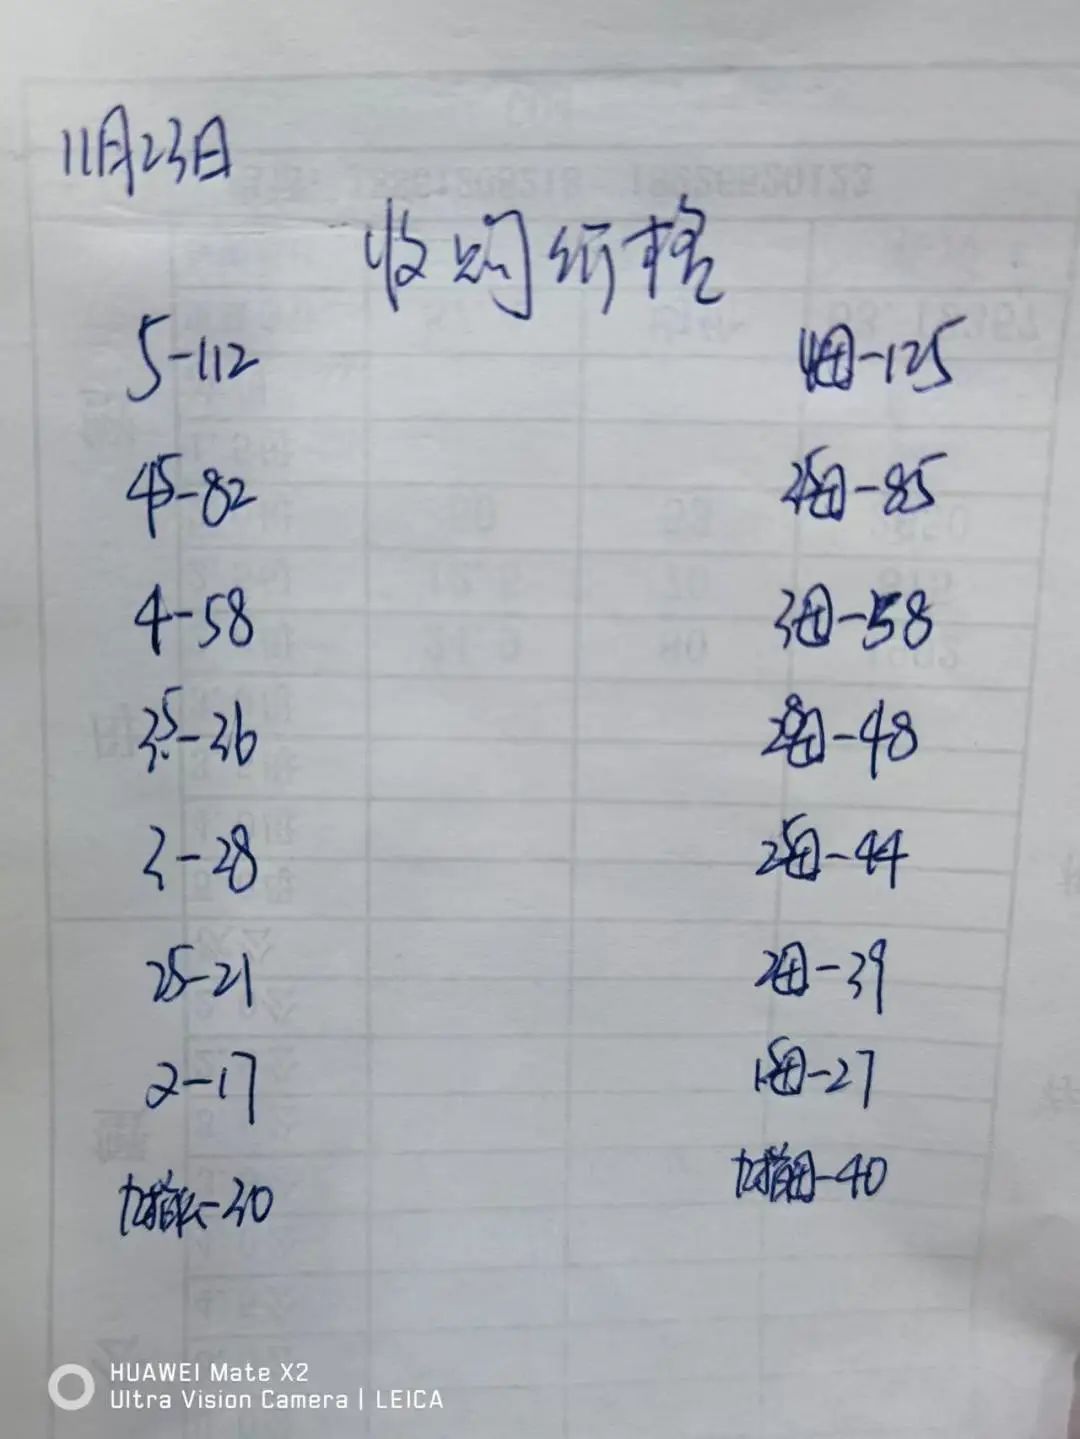 11月23日
收购价格
5-112 4母-125
4.5-82 3.5母-85
4-58 3母-58
3.5-36 2.8母-48
3-28 2.5母-44
2.5-21 2母-39
2-17 1.5母-27
-30 母-40
HUAWEI Mate X2
Ultra Vision Camera | LEICA